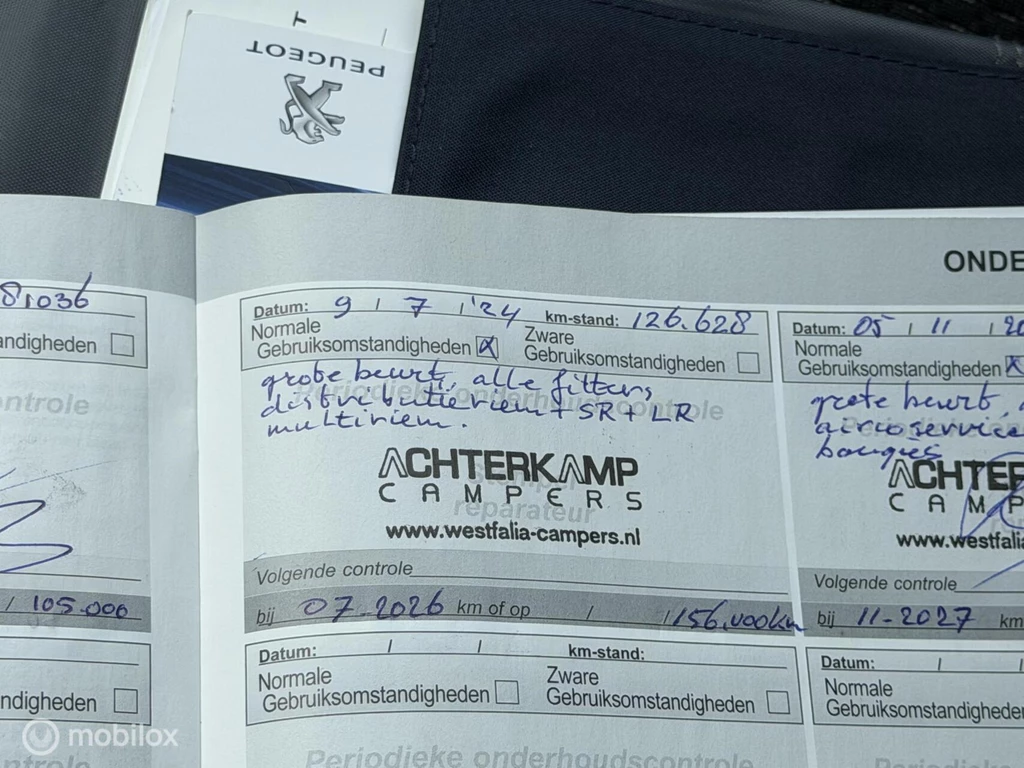 PEUGEOT
ONDE
81036
andigheden
ntrole
105.000
ndigheden
ntrole
Datum: 9 / 7 / '24 km-stand: 126.628
Normale
Gebruiksomstandigheden X
Zware
Gebruiksomstandigheden
grote beurt, alle filters,
distributieriem + SR + LR
multiriem.
Periodieke onderhoudscontrole
ACHTERKAMP
CAMPERS
reparateur
www.westfalia-campers.nl
Volgende controle
bij 07 2026 km of op / / 156.000km
Datum: / / km-stand:
Normale
Gebruiksomstandigheden
Zware
Gebruiksomstandigheden
Periodieke onderhoudscontrole
Datum: 05 / 11 / 20
Normale
Gebruiksomstandigheden X
grote beurt,
aircoservice
bougies
ACHTE
CAMP
www.westfalia
Volgende controle
bij 11-2027 km
Datum: /
Normale
Gebruiksomstandigheden
Period
mobilox